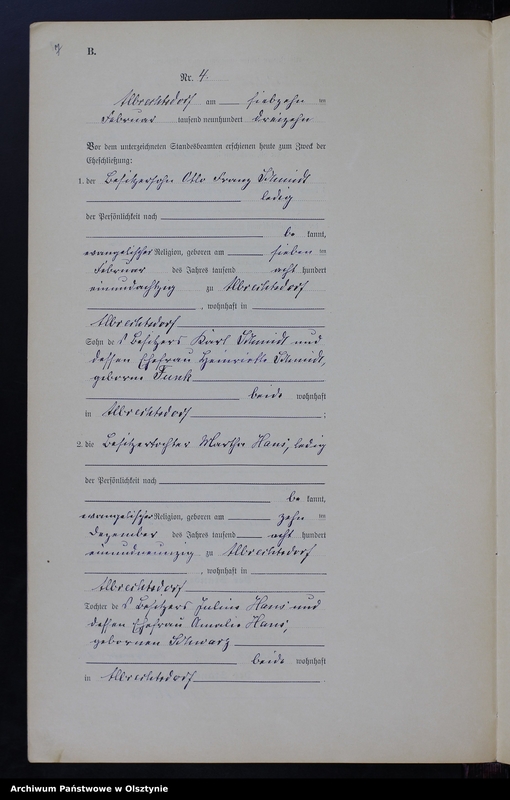 B.
Nr. 4.
Albrechtsdorf am siebzehn ten
Februar tausend neunhundert dreizehn
Vor dem unterzeichneten Standesbeamten erschienen heute zum Zweck der
Eheschließung:
1. der Besitzersohn Otto Franz Schmidt
ledig
der Persönlichkeit nach
be kannt,
evangelischer Religion, geboren am sieben ten
Februar des Jahres tausend acht hundert
einundachtzig zu Albrechtsdorf
, wohnhaft in
Albrechtsdorf
Sohn des Besitzers Karl Schmidt und
dessen Ehefrau Heinriette Schmidt,
geborne Funk
beide wohnhaft
in Albrechtsdorf ;
2. die Besitzertochter Martha Hans, ledig
der Persönlichkeit nach
be kannt,
evangelischer Religion, geboren am zehn ten
Dezember des Jahres tausend acht hundert
einundneunzig zu Albrechtsdorf
, wohnhaft in
Albrechtsdorf
Tochter des Besitzers Julius Hans und
dessen Ehefrau Amalie Hans,
gebornen Schwarz
beide wohnhaft
in Albrechtsdorf .
Archiwum Państwowe w Olsztynie